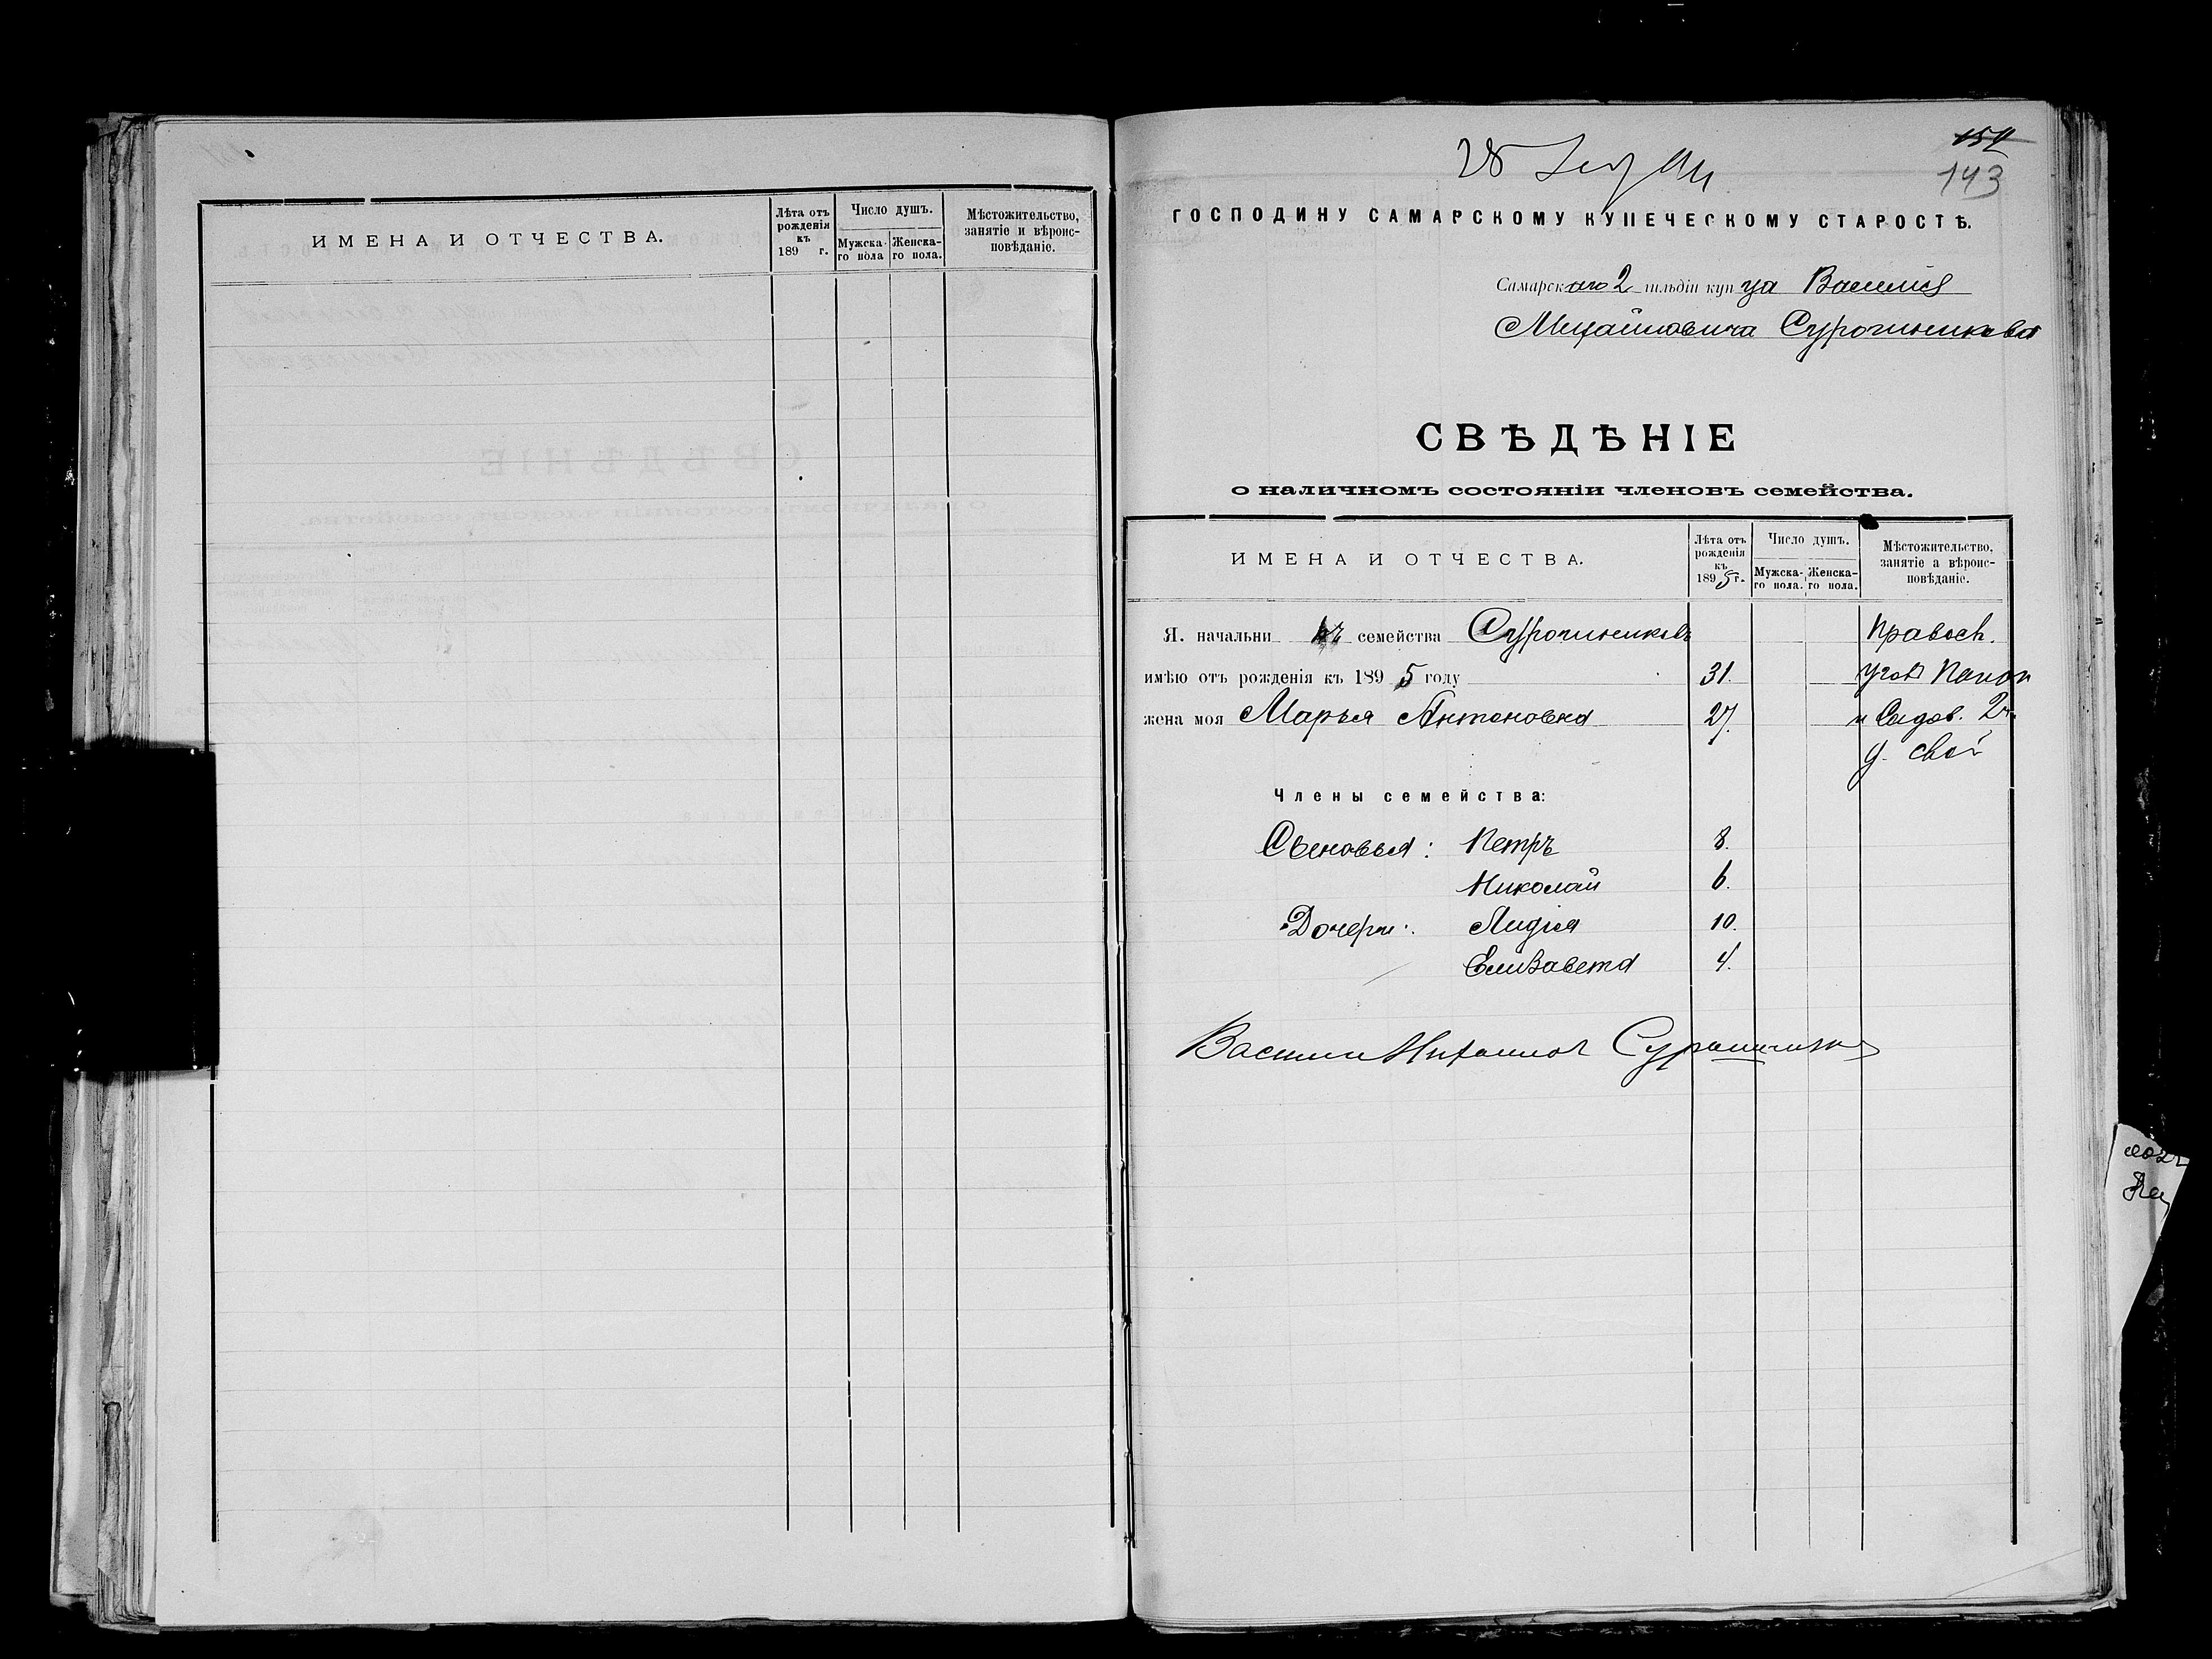 ИМЕНА И ОТЧЕСТВА.
Лѣта отъ рожденія къ 189 г.
Число душъ.
Мужска-го пола
Женска-го пола.
Мѣстожительство, занятіе и вѣроис-повѣданіе.
151
143
ГОСПОДИНУ САМАРСКОМУ КУПЕЧЕСКОМУ СТАРОСТѢ.
Самарскаго 2 гильдіи купца Василія
Михайловича Сурошникова
СВѢДѢНІЕ
о наличномъ состояніи членовъ семейства.
ИМЕНА И ОТЧЕСТВА.
Лѣта отъ рожденія къ 1895 г.
Число душъ.
Мужска-го пола.
Женска-го пола.
Мѣстожительство, занятіе а вѣроис-повѣданіе.
Я. начальникъ семейства Сурошниковъ Правосл.
имѣю отъ рожденія къ 1895 году 31. уголъ Панск
жена моя Марья Антоновна 27. и Садов.
д. свой
Члены семейства:
Сыновья: Петръ 8.
Николай 6.
Дочери: Лидія 10.
Елизавета 4.
Василий Михайлов Сурошников